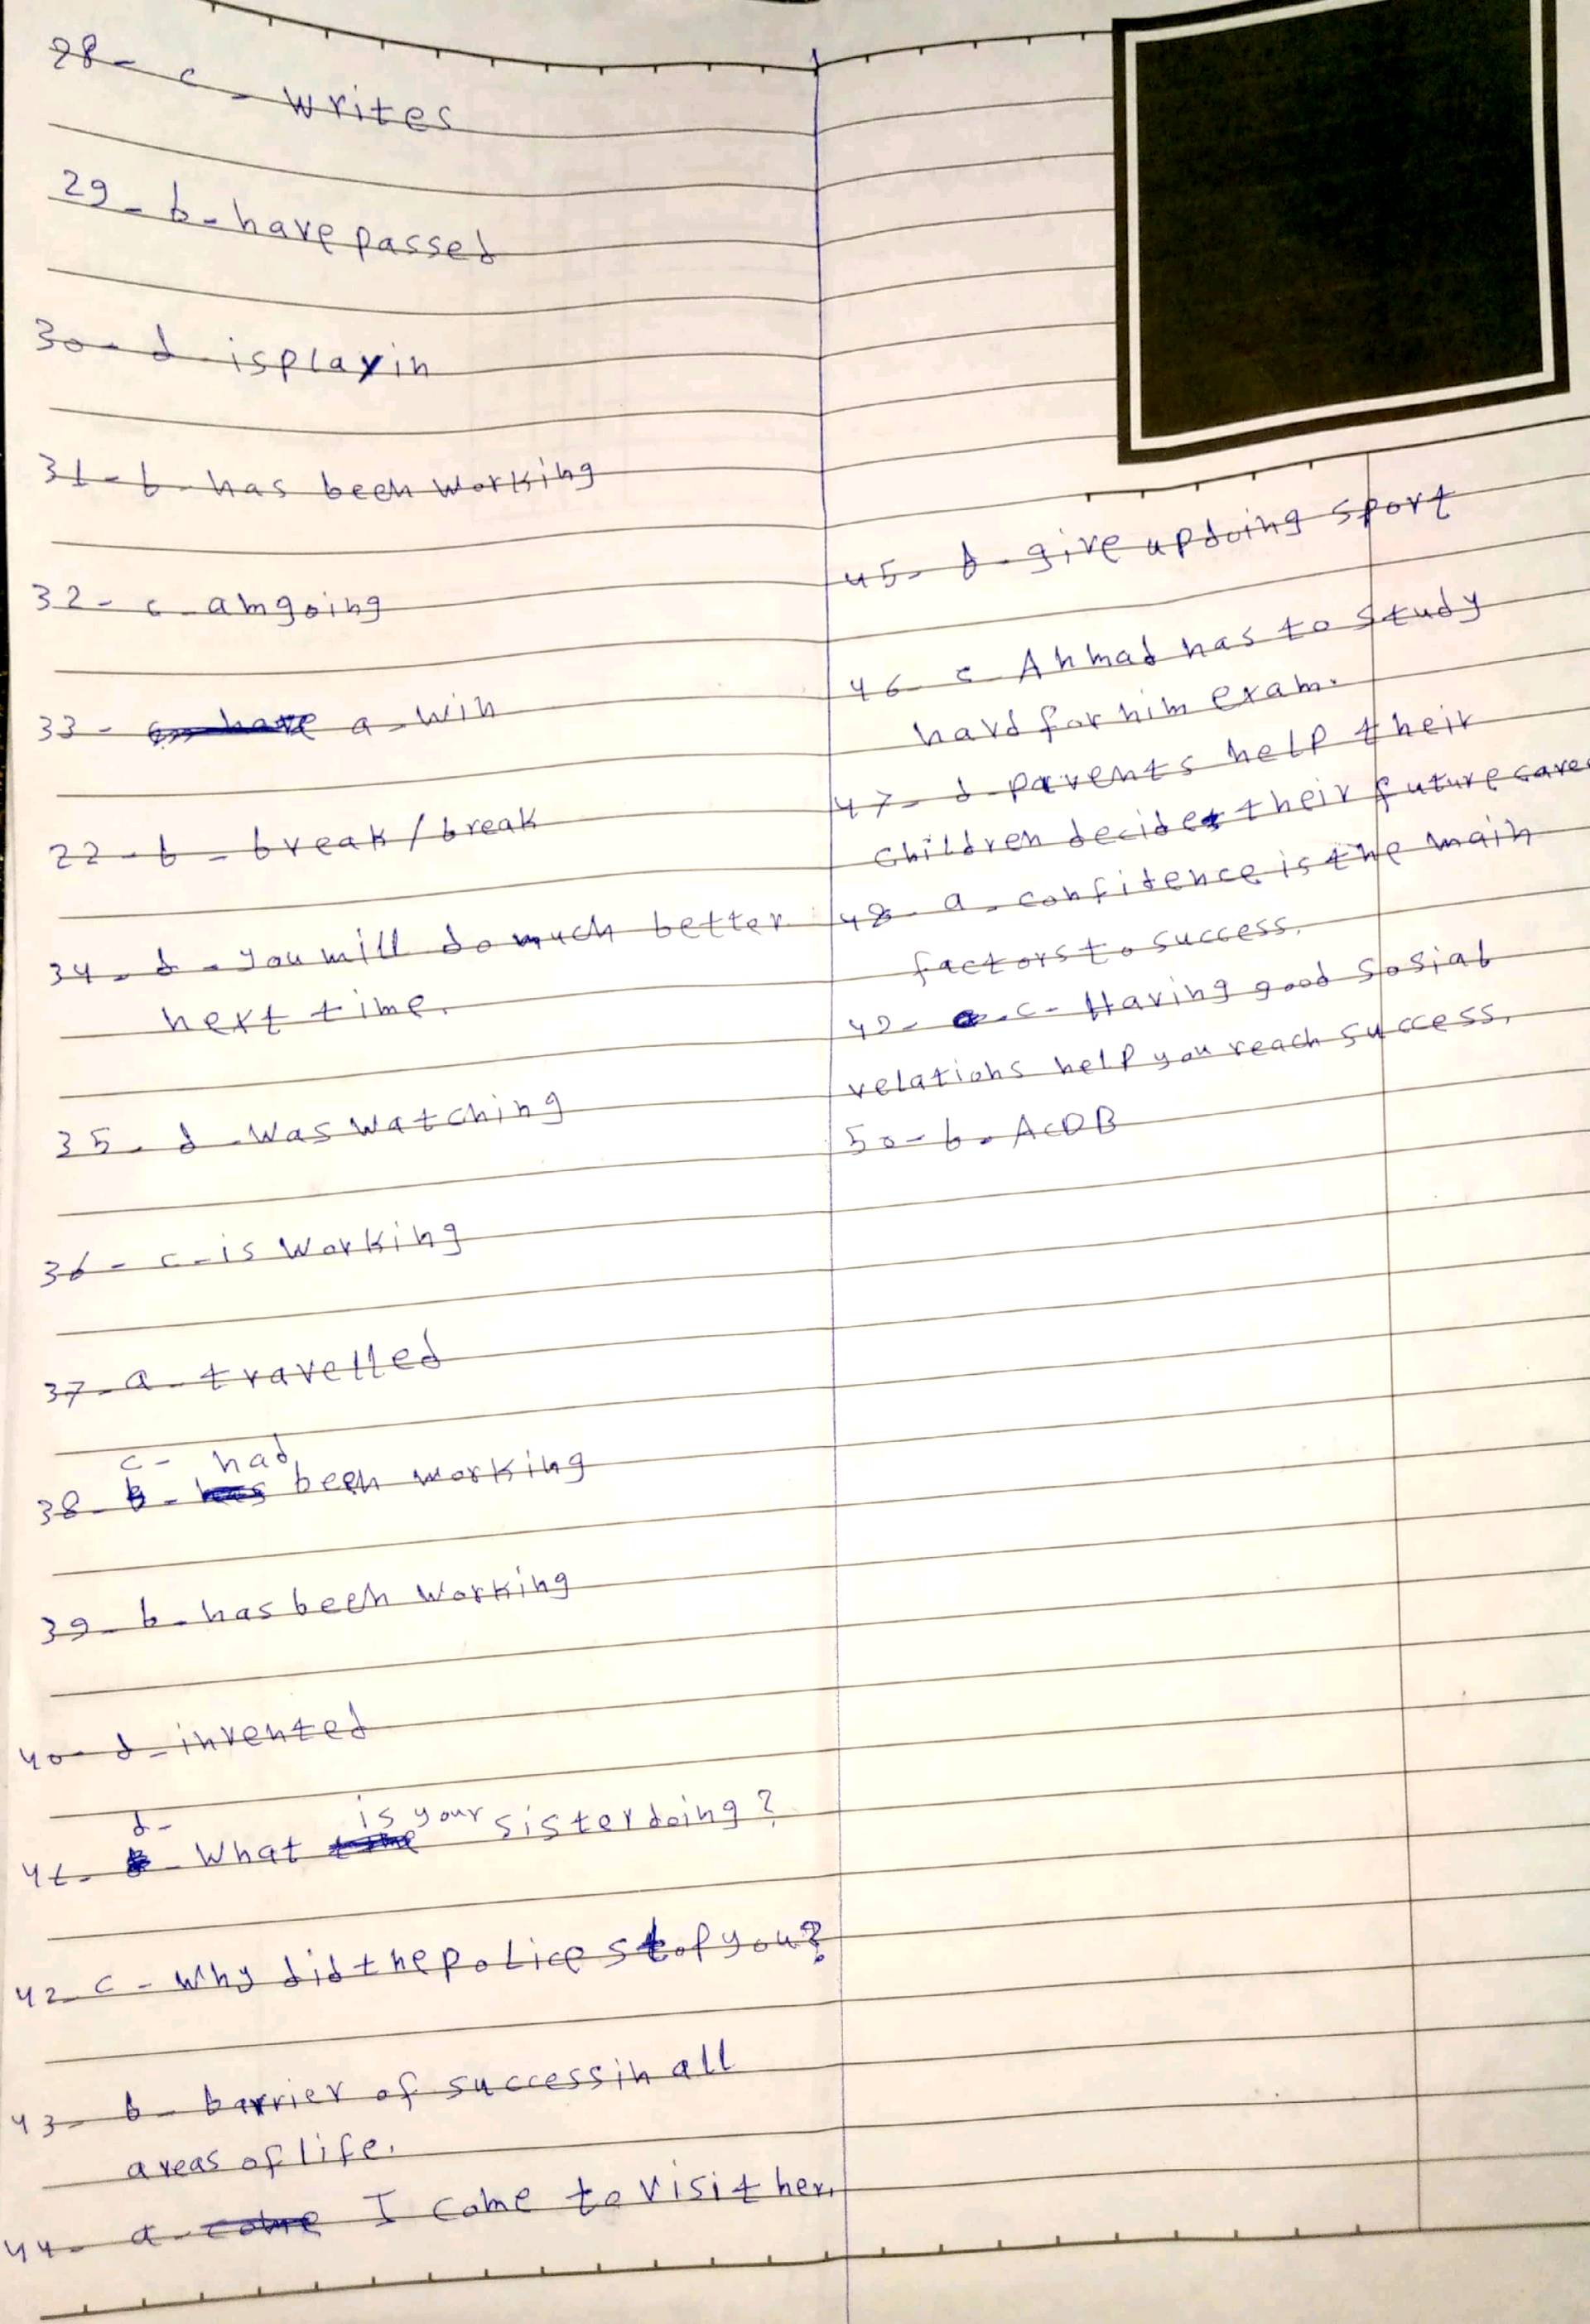 28- c - writes
29- b- have passed
30- d isplayin
31- b- has been working
32- c- am going
33- a- win
22- b- break/break
34- d- you will do much better
next time.
35- d- was watching
36- c- is working
37- a- travelled
c- had
38- been working
39- b- has been working
40- d- invented
d- is your
41- What sister doing?
42- c- Why did the police stop you?
43- b- barrier of success in all
areas of life.
44- a- I come to visit her.
45- b- give up doing sport
46- c Ahmad has to study
hard for him exam.
47- d- parents help their
children decide their future
48- a- confidence is the main
factors to success.
49- c- Having good sosial
relations help you reach success.
50- b- ACDB